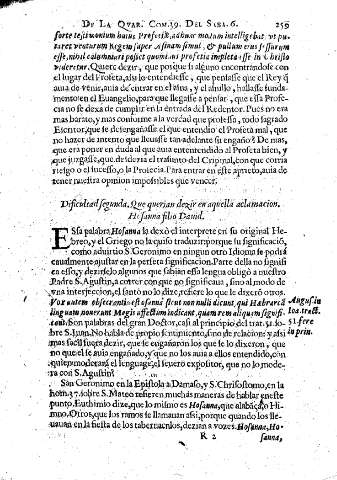 DE LA QVAR. COM.39. DEL SABA.6. 259
forte testimonium huius Prophetæ, adhuc motum intelligebat vt pu-
taret venturum Regem super Asinam simul, & pullum eius sessurum
esse, nihil calumniari posset quominus profetia impleta esse in Christo
videretur. Quiere dezir, que porque si alguno encontrandose con
el lugar del Profeta, assi lo entendiesse, que pensasse que el Rey q̃
auia de venir, auia de entrar en el asna, y el asnillo, hallasse funda-
mento en el Euangelio, para que llegasse a pensar, que essa Profe-
cia no se dexa de cumplir en la entrada del Redentor. Pues no era
mas barato, y mas conforme a la verdad que professa, todo sagrado
Escritor, que se desengañasse el que entendio el Profeta mal, que
no hazer de intento que lleuasse tan adelante su engaño? De mas,
que era poner en duda al que aura entendido al Profeta bien, y
que juzgasse, que desderia el trasunto del Original, con que corria
riesgo o el sucesso, o la Profecia. Para entrar en este aprieto, auia de
tener nuestra opinion impossibles que vencer.
Dificultad segunda, Que querian dezir en aquella aclamacion.
Hosanna filio Dauid.
ESsa palabra Hosanna la dexò el interprete en su original He-
breo, y el Griego no la quiso traduzir porque su significació,
como aduirtio S. Geronimo en ningun otro Idioma se podia
enteramente ajustar en la perfeta significacion. Parte della no signifi
ca esso, y dezirselo algunos que sabian essa lengua obligò a nuestro
Padre S. Agustin, a correr con que no significaua, sino al modo de
vna interjecion, el santo no lo dize, refiere lo que le dixerò otros.
Vox autem obsecrantis est osanna sicut non nulli dicunt, qui Hæbraicā Augus.in
linguam nouerunt Magis affectum indicant, quam rem aliquem signifi- Ioa.tract.
cant. Son palabras del gran Doctor, casi al principio del trat. 51. so- 51. fere
bre S. Juan. No habla de propio sentimiento, sino de relacion; y assi in prin.
mas facil fuera dezir, que se engañaron los que se lo dixeron, que
no que el se auia engañado, y que no los auia a ellos entendido, con
que quien moderara el lenguage, fuera el expositor, que no lo mode-
rara con S. Agustin?
San Geronimo en la Epistola a Damaso, y S. Chrisostomo, en la
hom. 37. sobre S. Mateo refieren muchas maneras de hablar en este
punto. Euthimio dize, que lo mismo es Hosanna, que alabāça, o Hi-
mno. Otros, que los ramos se llamauan assi, porque quando los lle-
uauan en la fiesta de los tabernaculos, dezian a vozes. Hosanna, Ho-
R 2 sanna,